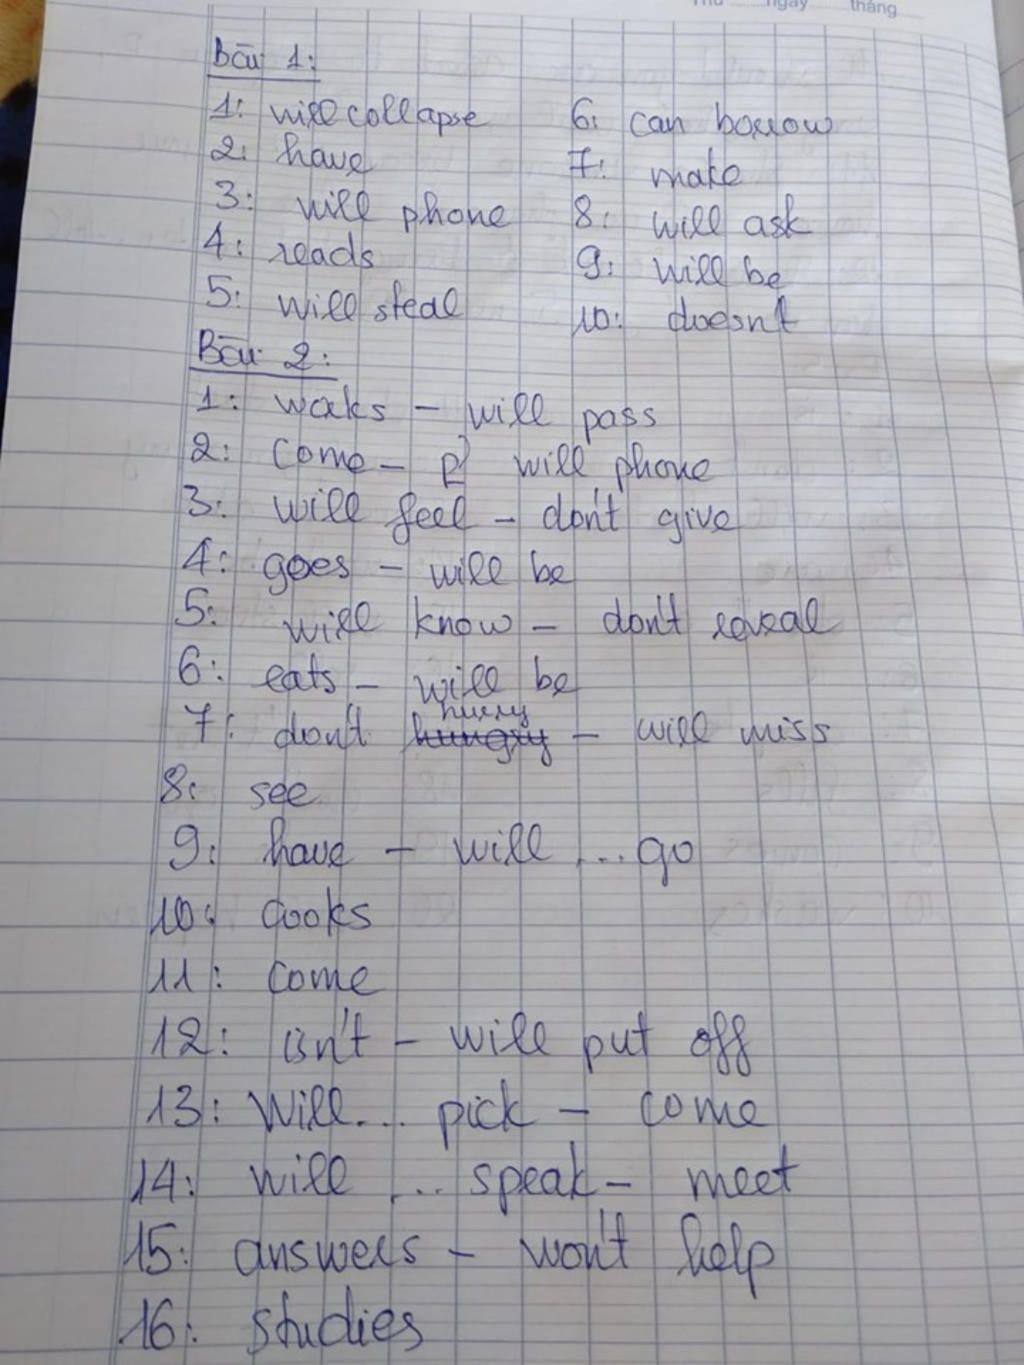 Thứ ngày tháng
Bài 1:
1: will collapse
2: have
3: will phone
4: reads
5: will steal
6: can borrow
7: make
8: will ask
9: will be
10: doesn't
Bài 2:
1: waks – will pass
2: come – will phone
3: will feel – don't give
4: goes – will be
5: will know – don't reveal
6: eats – will be
7: don't hurry – will miss
8: see
9: have – will ... go
10: cooks
11: come
12: isn't – will put off
13: Will... pick – come
14: will ... speak – meet
15: answers – won't help
16: studies